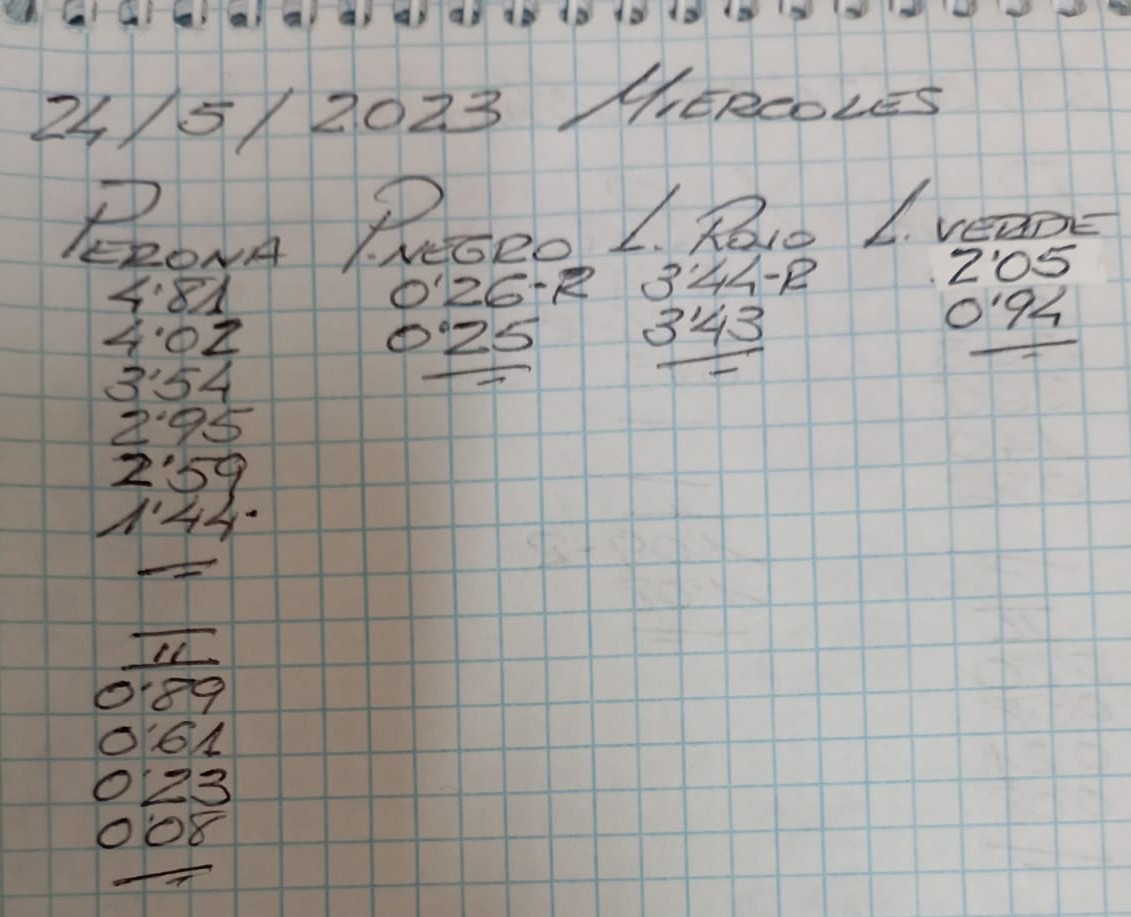 24/5/2023 MIERCOLES
PERONA P.NEGRO L. ROJO L. VERDE
4'81 0'26-R 3'44-R 2'05
4'02 0'25 3'43 0'94
3'54
2'95
2'59
1'44.
11
0'89
0'61
0'23
0'08